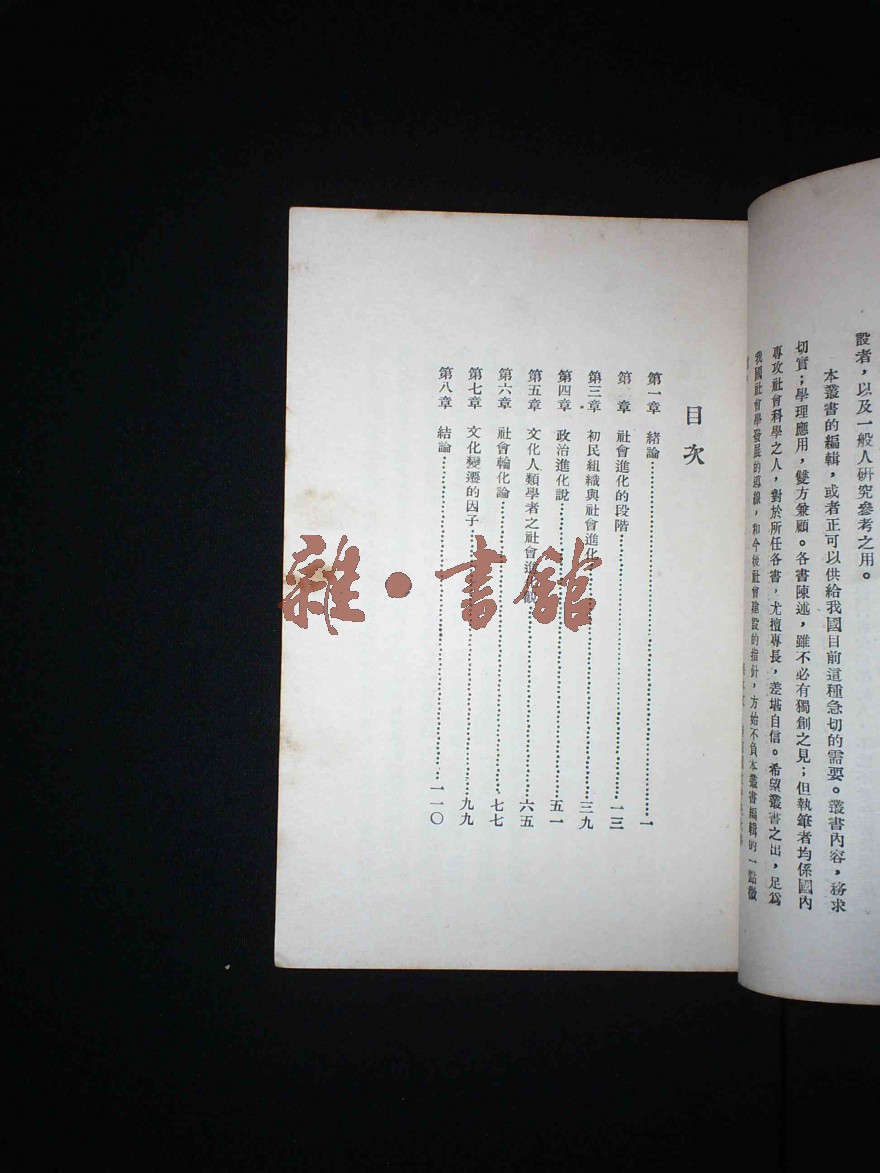 設者，以及一般人研究參考之用。
本叢書的編輯，或者正可以供給我國目前這種急切的需要。叢書內容，務求
切實；學理應用，雙方兼顧。各書陳述，雖不必有獨創之見；但執筆者均係國內
專攻社會科學之人，對於所任各書，尤擅專長，差堪自信。希望叢書之出，足爲
我國社會學發展的導線，和今後社會建設的指針，方始不負本叢書編輯的一點微
目次
第一章　緒論……一
第　章　社會進化的段階……一三
第三章　初民組織與社會進化……三九
第四章　政治進化說……五一
第五章　文化人類學者之社會進　觀……六五
第六章　社會輪化論……七七
第七章　文化變遷的因子……九九
第八章　結論……一一〇
雜・書館